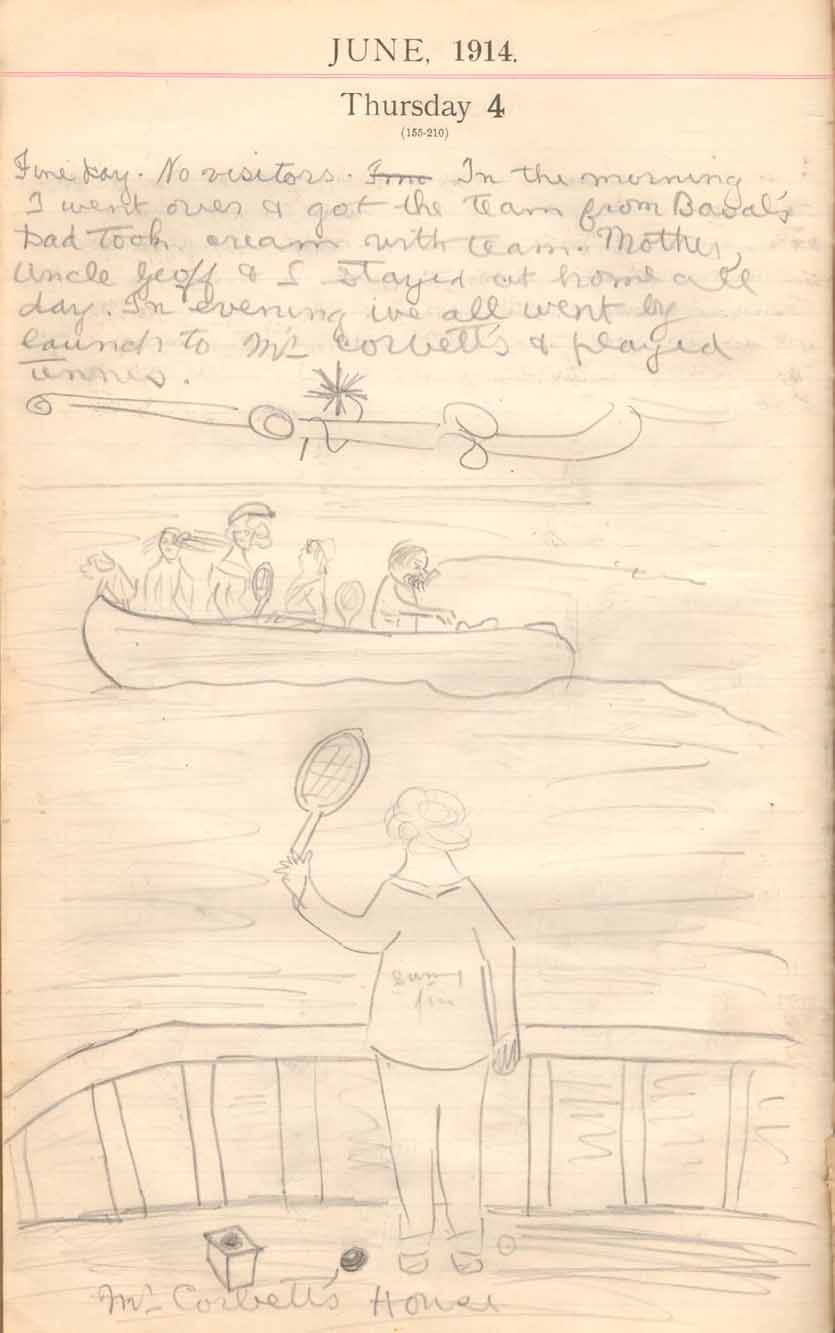 JUNE, 1914.
Thursday 4
(155-210)
Fine day. No visitors. Fine In the morning
I went over & got the team from Baval's
Dad took cream with team. Mother,
Uncle Geoff & I stayed at home all
day. In evening we all went by
launch to Mr Corbett's & played
Tennis.
Mr Corbett's House